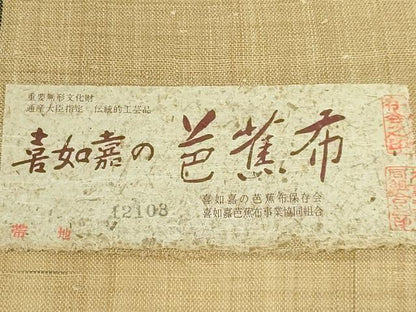 重要無形文化財
通産大臣指定 伝統的工芸品
喜如嘉の 芭蕉布
喜如嘉の芭蕉布保存会
喜如嘉芭蕉布事業協同組合
12103
帯 地